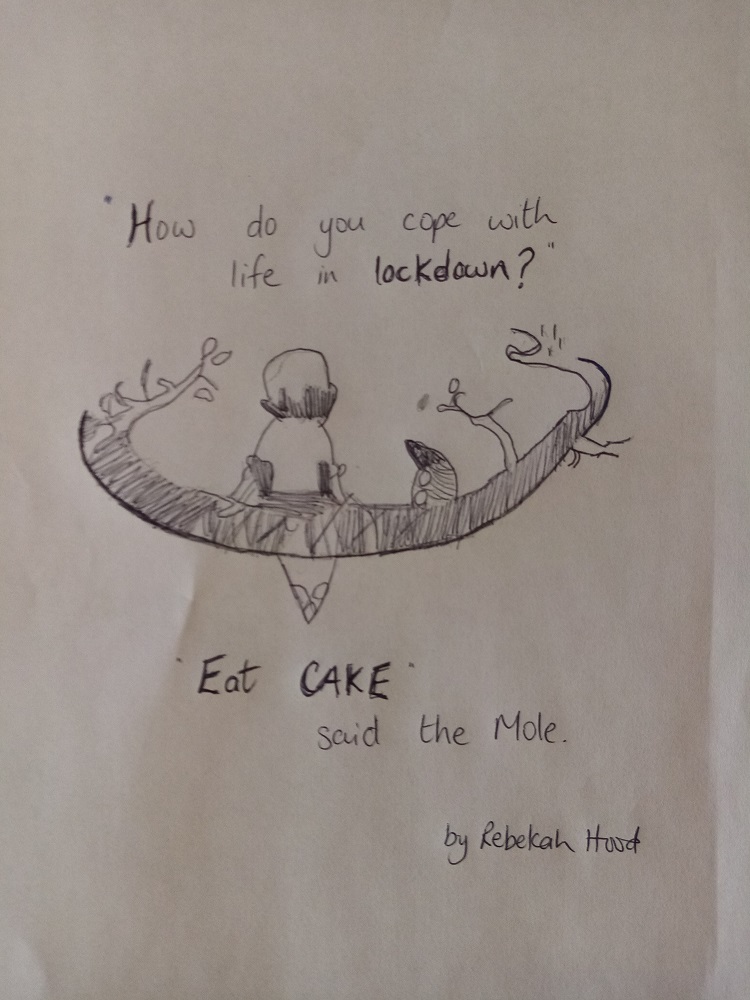 "How do you cope with
life in lockdown?"
"Eat CAKE"
said the Mole.
by Rebekah Hood